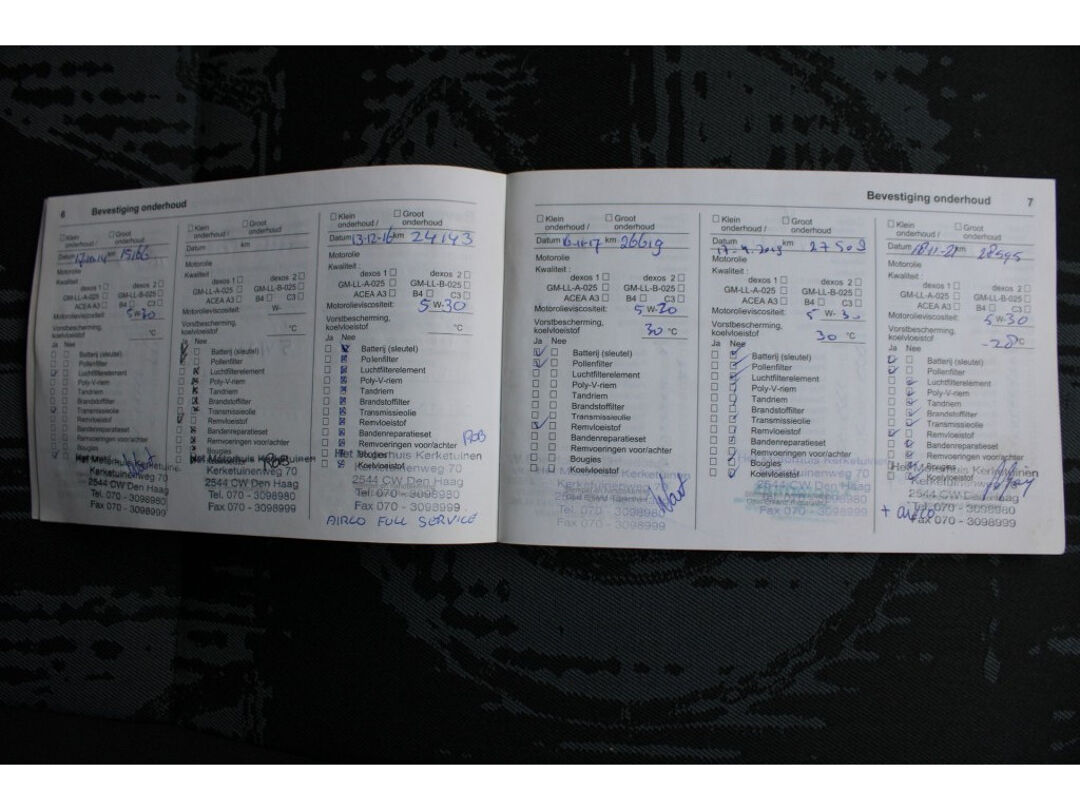 6 Bevestiging onderhoud
Klein onderhoud / Groot onderhoud
Datum km
Motorolie
Kwaliteit
dexos 1 dexos 2
GM-LL-A-025 GM-LL-B-025
ACEA A3 B4 C3
Motorolieviscositeit: 5 W-30
Vorstbescherming, koelvloeistof °C
Ja Nee
Batterij (sleutel)
Pollenfilter
Luchtfilterelement
Poly-V-riem
Tandriem
Brandstoffilter
Transmissieolie
Remvloeistof
Bandenreparatieset
Remvoeringen voor/achter
Kerketuinenweg 70
2544 CW Den Haag
Tel. 070 - 3098980
Fax 070 - 3098999
Klein onderhoud / Groot onderhoud
Datum km
Motorolie
Kwaliteit
dexos 1 dexos 2
GM-LL-A-025 GM-LL-B-025
ACEA A3 B4 C3
Motorolieviscositeit: W-
Vorstbescherming, koelvloeistof °C
Ja Nee
Batterij (sleutel)
Pollenfilter
Luchtfilterelement
Poly-V-riem
Tandriem
Brandstoffilter
Transmissieolie
Remvloeistof
Bandenreparatieset
Remvoeringen voor/achter
Bougies
Het Motorhuis Kerketuinen
ROB
Kerketuinenweg 70
2544 CW Den Haag
Tel. 070 - 3098980
Fax 070 - 3098999
Klein onderhoud / Groot onderhoud
Datum 13-12-16 km 24143
Motorolie
Kwaliteit :
dexos 1 dexos 2
GM-LL-A-025 GM-LL-B-025
ACEA A3 B4 C3
Motorolieviscositeit: 5 W-30
Vorstbescherming, koelvloeistof °C
Ja Nee
Batterij (sleutel)
Pollenfilter
Luchtfilterelement
Poly-V-riem
Tandriem
Brandstoffilter
Transmissieolie
Remvloeistof
Bandenreparatieset
Remvoeringen voor/achter ROB
Bougies
Koelvloeistof
Het Motorhuis Kerketuinen
Kerketuinenweg 70
2544 CW Den Haag
Tel. 070 - 3098980
Fax 070 - 3098999
AIRCO FULL SERVICE
Bevestiging onderhoud 7
Klein onderhoud / Groot onderhoud
Datum km 26619
Motorolie
Kwaliteit :
dexos 1 dexos 2
GM-LL-A-025 GM-LL-B-025
ACEA A3 B4 C3
Motorolieviscositeit: 5 W-30
Vorstbescherming, koelvloeistof 30 °C
Ja Nee
Batterij (sleutel)
Pollenfilter
Luchtfilterelement
Poly-V-riem
Tandriem
Brandstoffilter
Transmissieolie
Remvloeistof
Bandenreparatieset
Remvoeringen voor/achter
Bougies
Koelvloeistof
Fax 070 - 3098999
Klein onderhoud / Groot onderhoud
Datum km 27509
Motorolie
Kwaliteit :
dexos 1 dexos 2
GM-LL-A-025 GM-LL-B-025
ACEA A3 B4 C3
Motorolieviscositeit: 5 W-30
Vorstbescherming, koelvloeistof 30 °C
Ja Nee
Batterij (sleutel)
Pollenfilter
Luchtfilterelement
Poly-V-riem
Tandriem
Brandstoffilter
Transmissieolie
Remvloeistof
Bandenreparatieset
Remvoeringen voor/achter
Bougies
Koelvloeistof
2544 CW Den Haag
Fax 070 - 3098999
Klein onderhoud / Groot onderhoud
Datum 18-11-21 km 28595
Motorolie
Kwaliteit :
dexos 1 dexos 2
GM-LL-A-025 GM-LL-B-025
ACEA A3 B4 C3
Motorolieviscositeit: 5 W-30
Vorstbescherming, koelvloeistof -28 °C
Ja Nee
Batterij (sleutel)
Pollenfilter
Luchtfilterelement
Poly-V-riem
Tandriem
Brandstoffilter
Transmissieolie
Remvloeistof
Bandenreparatieset
Remvoeringen voor/achter
Bougies
Koelvloeistof
Het Motorhuis Kerketuinen
Kerketuinenweg
2544 CW Den Haag
Tel. 070 - 3098980
+ airco
Fax 070 - 3098999